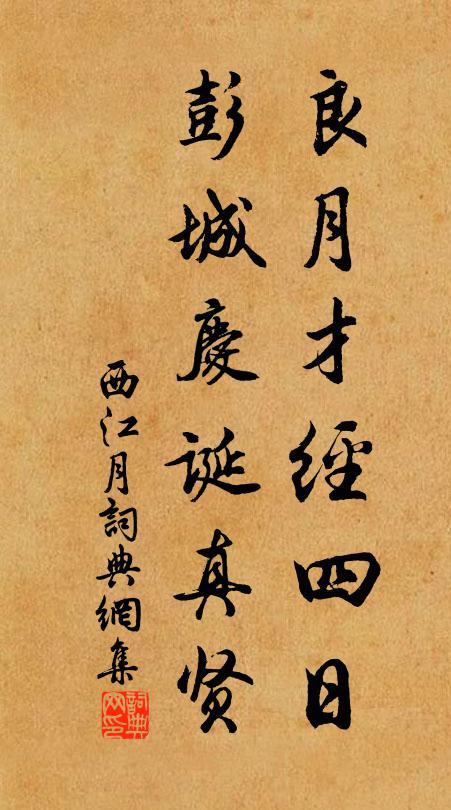 良月才經四日
彭城慶誕真贤
西江月詞典網集
詞典网印